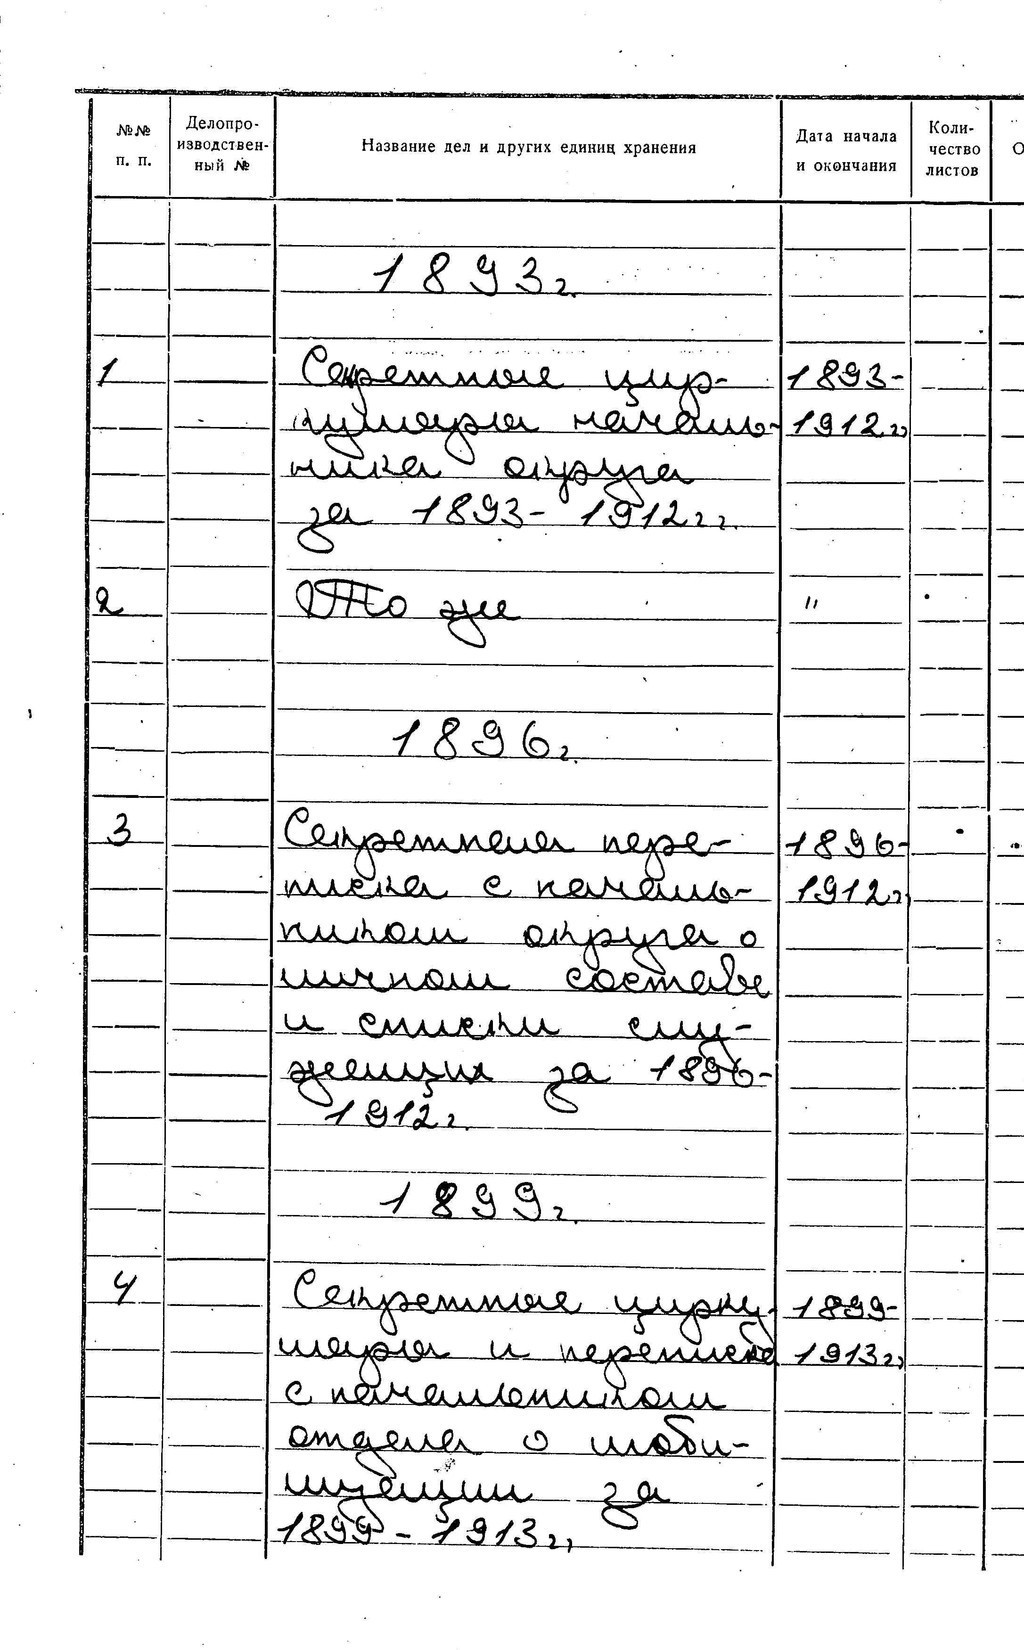 №№ п. п.
Делопро-
изводствен-
ный №
Название дел и других единиц хранения
Дата начала
и окончания
Коли-
чество
листов
О
1893г.
1 Секретные цир- 1893-
куляры началь- 1912гг
ника округа
за 1893- 1912гг.
2 То же "
1896г.
3 Секретная пере- 1896-
писка с началь- 1912гг
ником округа о
личном составе
и списки слу-
жащих за 1896-
1912г.
1899г.
4 Секретные цирку- 1899-
ляры и переписка 1913гг
с начальником
отдела о моби-
лизации за
1899-1913гг